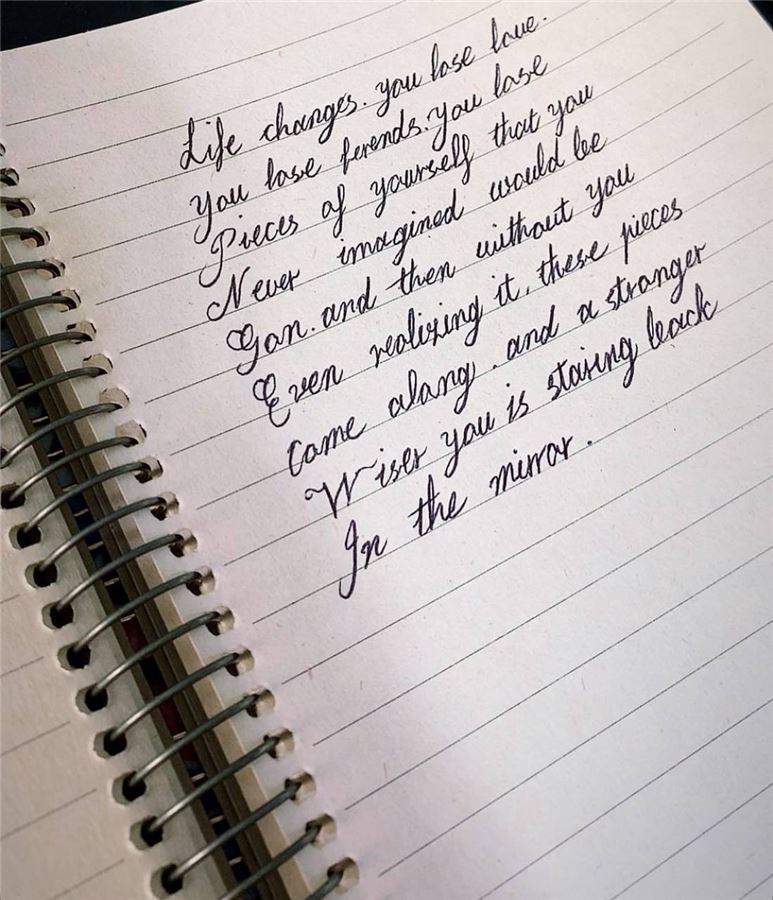 Life changes. you lose love.
You lose ferends. you lose
Pieces of yourself that you
Never imagined would be
Gon. and then without you
Even realizing it, these pieces
Come alang. and a stranger
Wiser you is staring back
In the mirror.